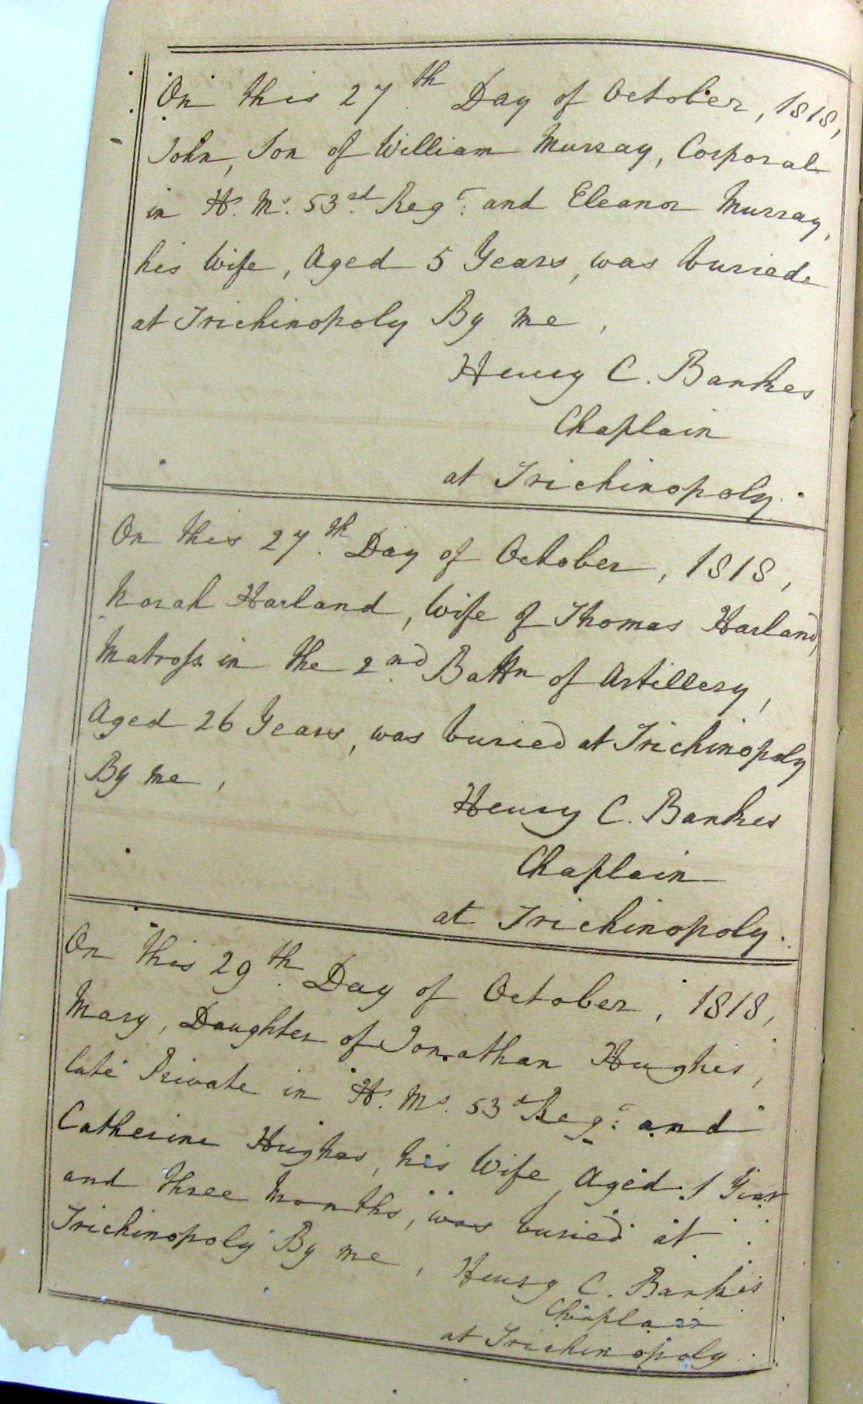 On this 27th Day of October, 1818,
John, Son of William Murray, Corporal
in H. Ms. 53rd Regt. and Eleanor Murray,
his Wife, Aged 5 Years, was buried
at Trichinopoly By me,
Henry C. Bankes
Chaplain
at Trichinopoly.
On this 27th Day of October, 1818,
Norah Harland, Wife of Thomas Harland
Matross in the 2nd Battn of Artillery,
Aged 26 Years, was buried at Trichinopoly
By me,
Henry C. Bankes
Chaplain
at Trichinopoly.
On this 29th Day of October, 1818,
Mary, Daughter of Jonathan Hughes,
late Private in H. Ms. 53d Regt. and
Catherine Hughes, his Wife, Aged 1 Year
and three Months, was buried at
Trichinopoly By me, Henry C. Bankes
Chaplain
at Trichinopoly